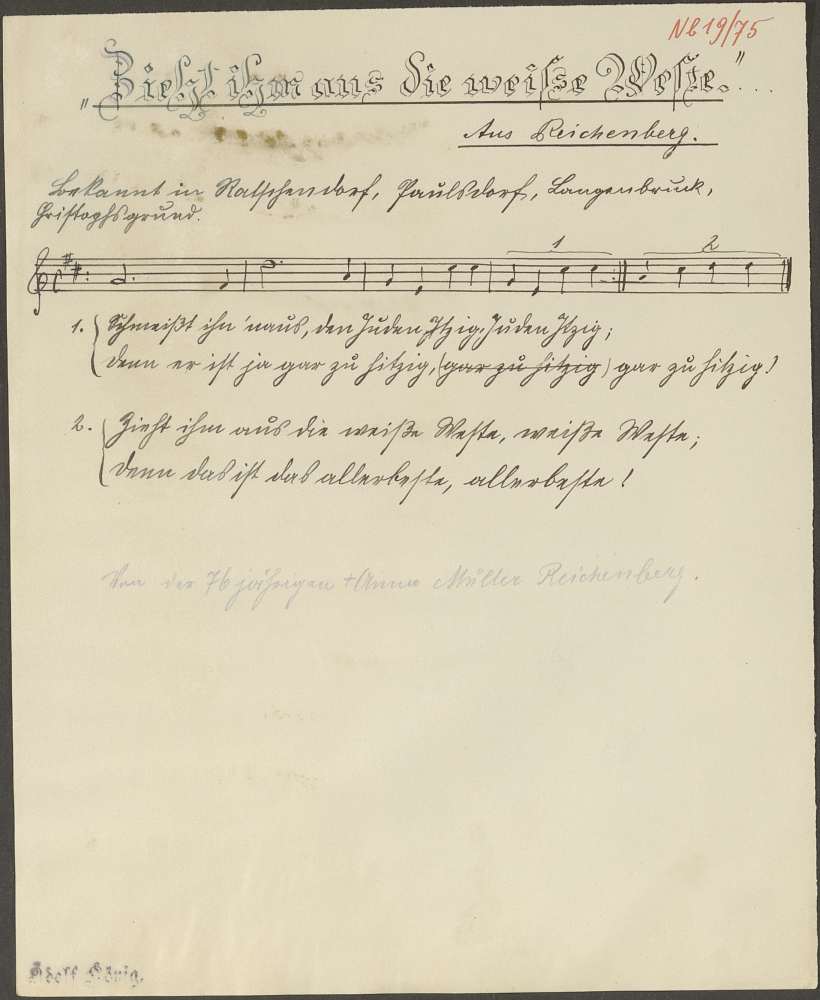 NB 19/75
"Zieht ihm aus die weisse Weste."...
Aus Reichenberg.
Bekannt in Ratschendorf, Paulsdorf, Langenbruck,
Christophsgrund.
1 2
1. Schmeißt ihn 'naus, den Juden Itzig, Juden Itzig;
denn er ist ja gar zu hitzig, (gar zu hitzig) gar zu hitzig!
2. Zieht ihm aus die weiße Weste, weiße Weste;
denn das ist das allerbeste, allerbeste!
Von der 76 jährigen + Anna Müller Reichenberg.
Adolf König.